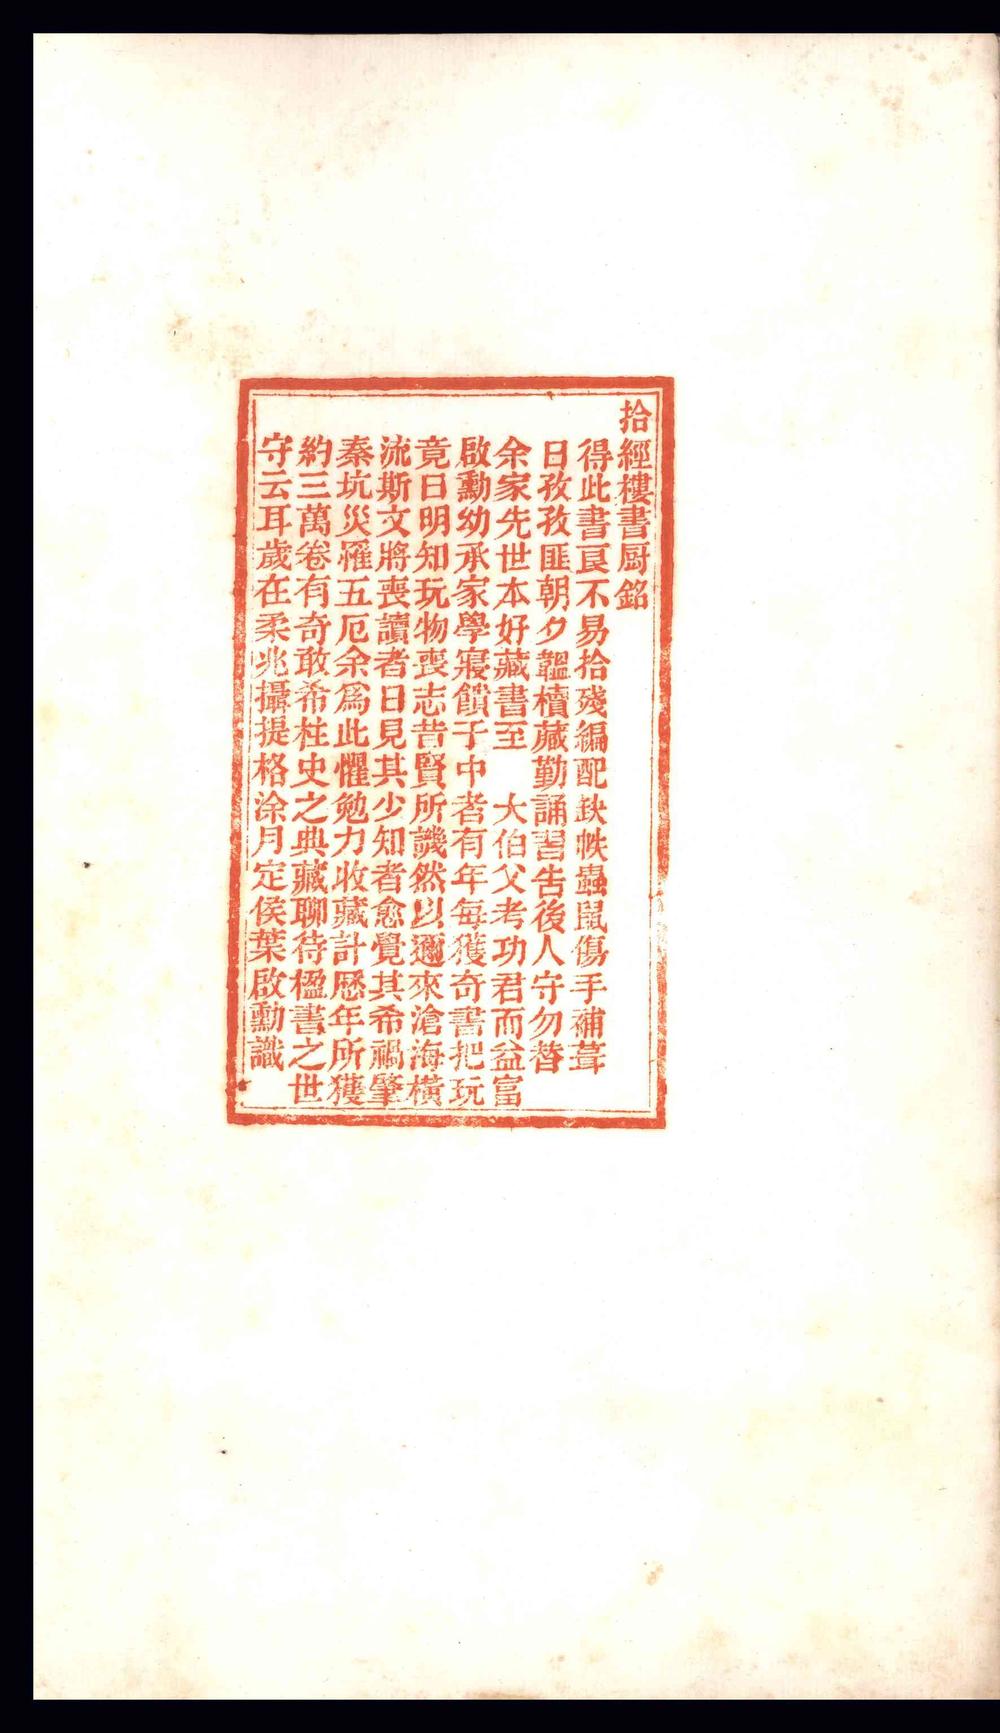 拾經樓書厨銘
得此書良不易拾殘編配缺帙蟲鼠傷手補葺
日孜孜匪朝夕韞櫝藏勤誦習告後人守勿替
余家先世本好藏書至　大伯父考功君而益富
啟勳幼承家學寢饋于中者有年每獲奇書把玩
竟日明知玩物喪志昔賢所譏然以邇來滄海橫
流斯文將喪讀者日見其少知者愈覺其希禍肇
秦坑災罹五厄余爲此懼勉力收藏計歷年所獲
約三萬卷有奇敢希柱史之典藏聊待楹書之世
守云耳歲在柔兆攝提格涂月定侯葉啟勳識